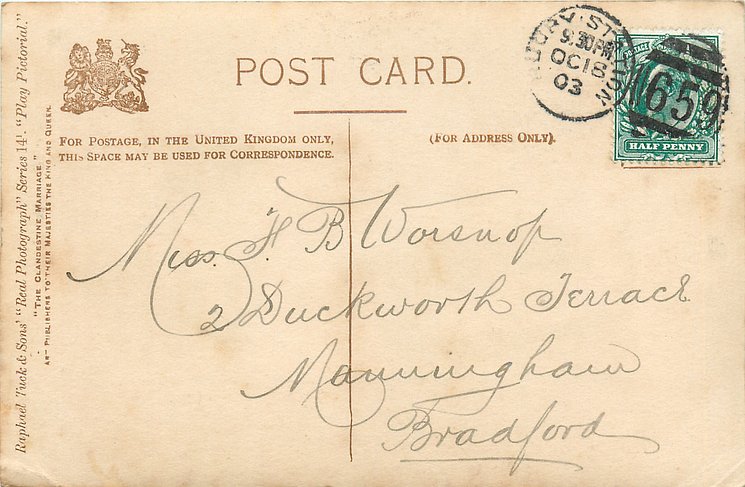 POST CARD.
FOR POSTAGE, IN THE UNITED KINGDOM ONLY,
THIS SPACE MAY BE USED FOR CORRESPONDENCE.
(FOR ADDRESS ONLY).
9.30PM
OC 18
03
659
HALF PENNY
Miss. H B Worsnop
2 Duckworth Terrace
Manningham
Bradford
Raphael Tuck & Sons' "Real Photograph" Series 14I. "Play Pictorial."
"THE CLANDESTINE MARRIAGE."
ART PUBLISHERS TO THEIR MAJESTIES THE KING AND QUEEN.